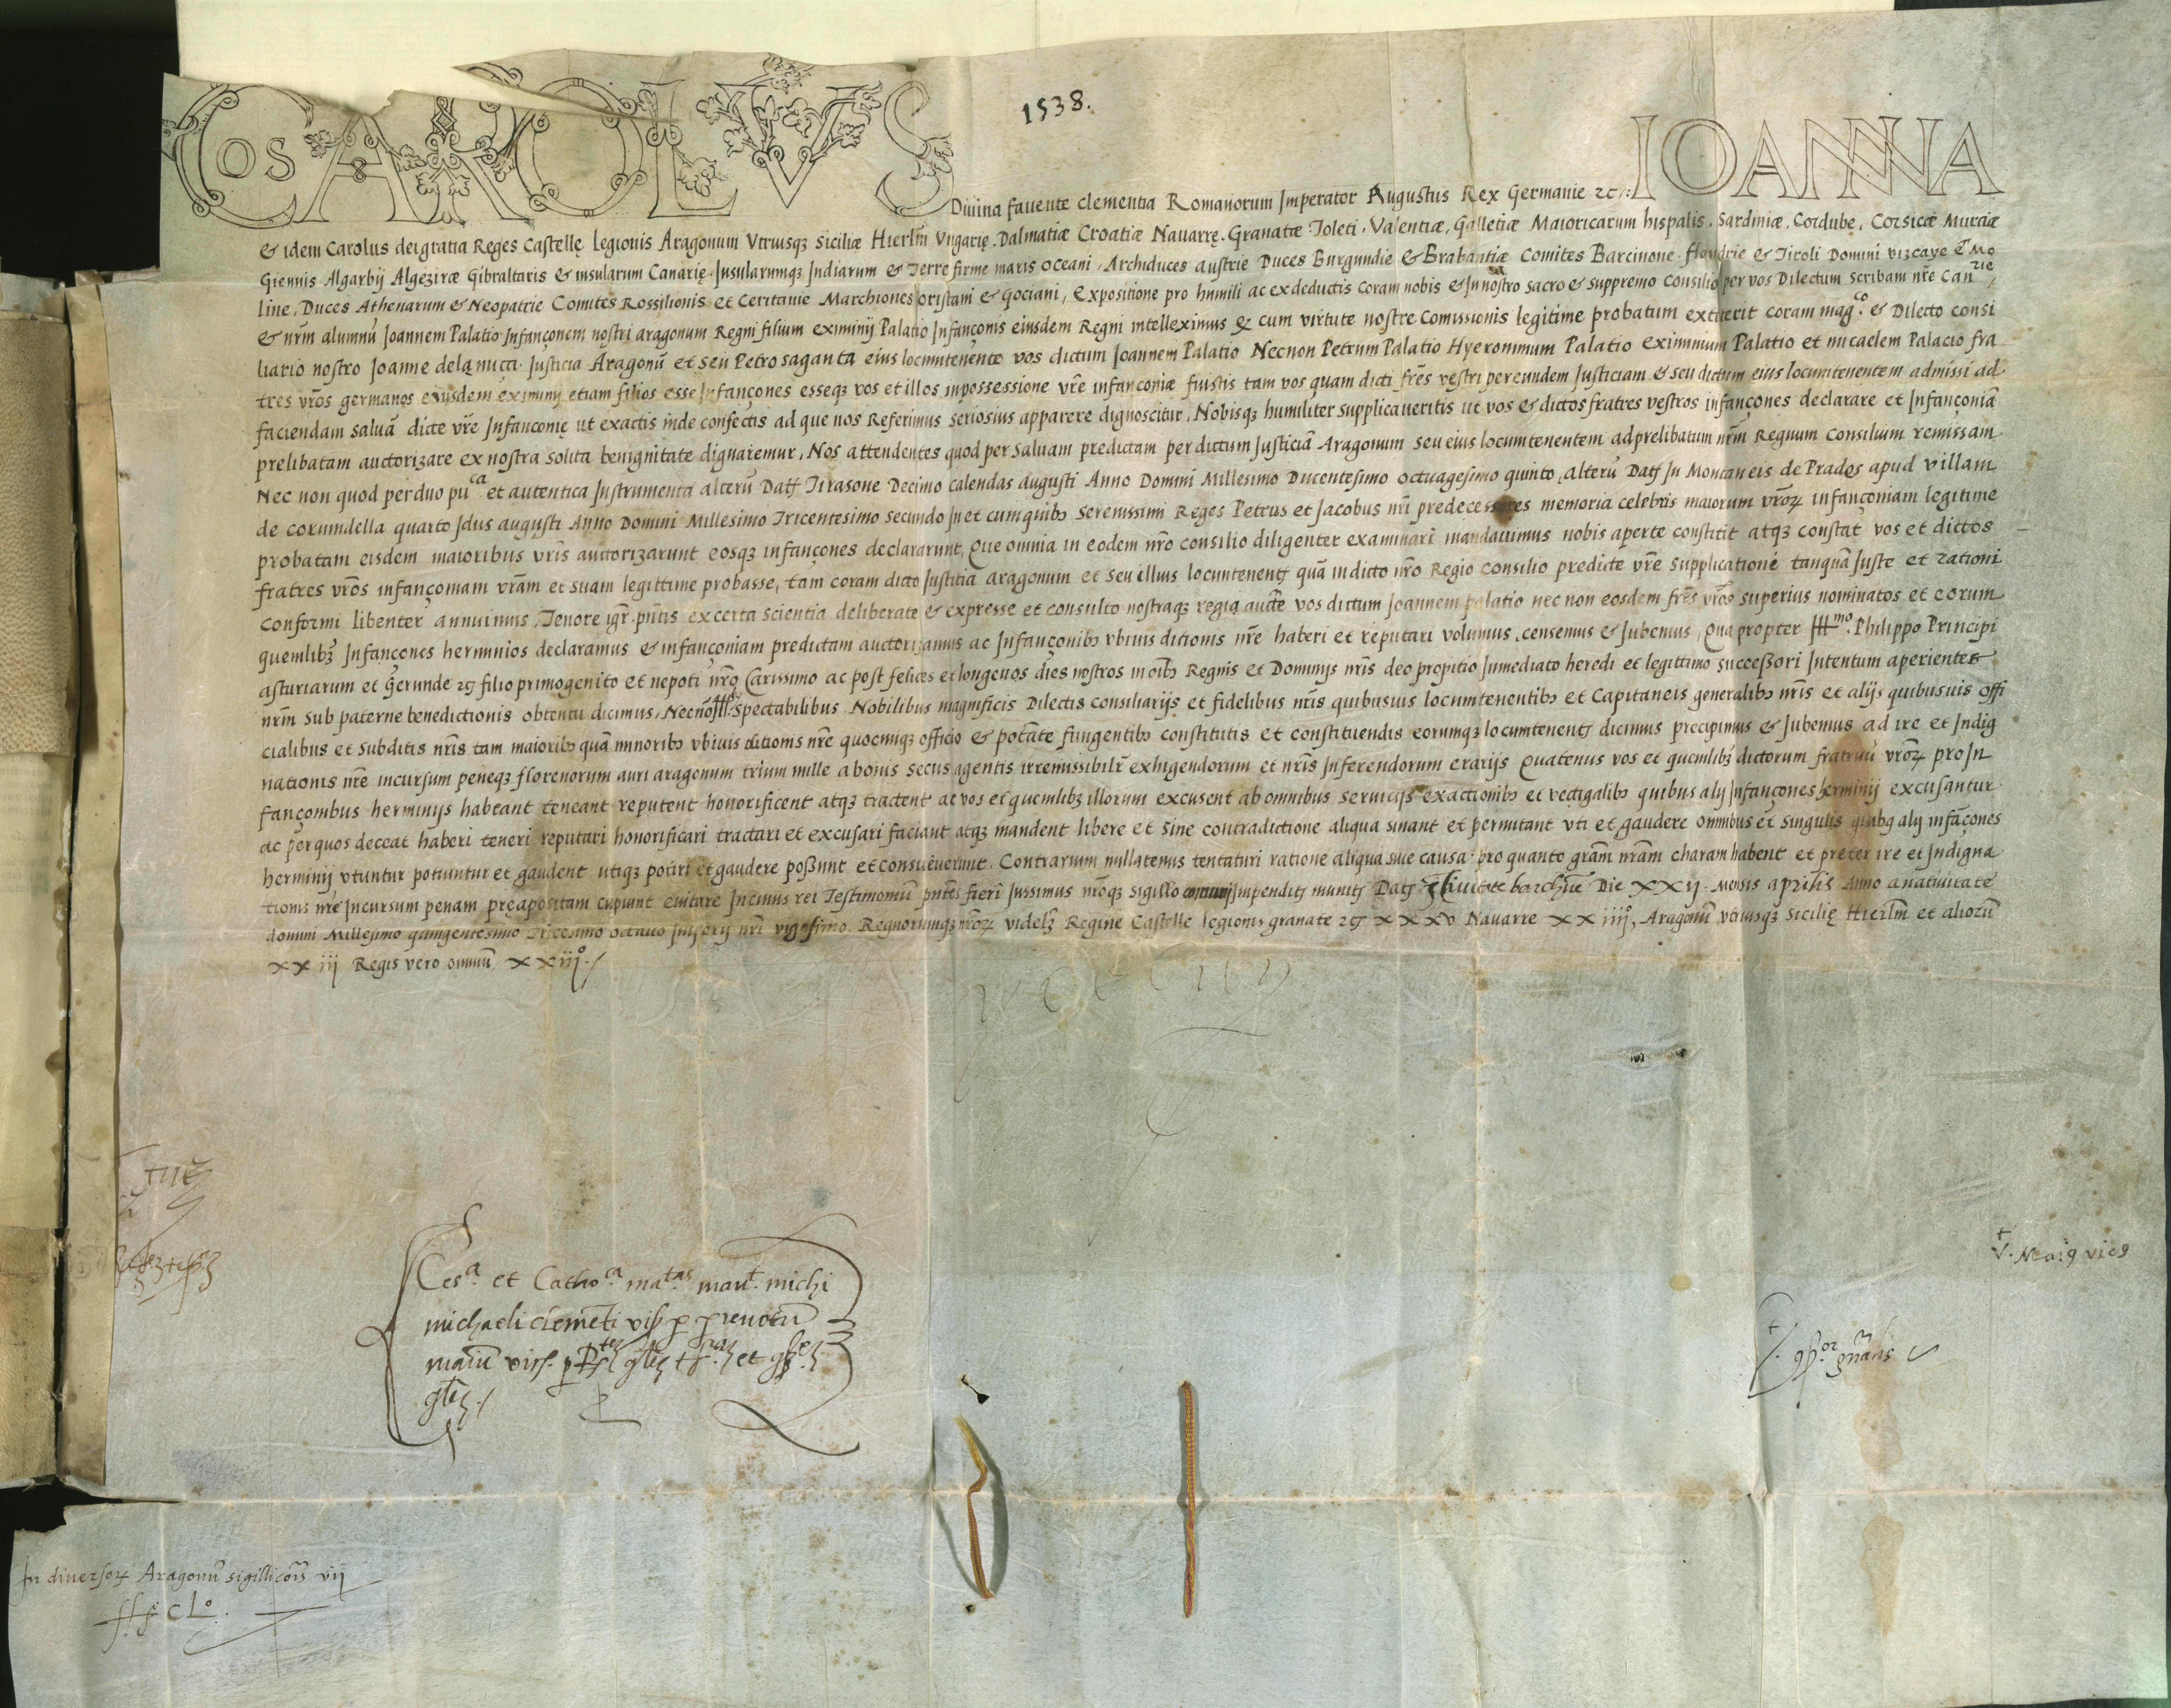 1538.
NOS CAROLVS Diuina fauente clementia Romanorum Imperator Augustus Rex Germanie zc: IOANNA
& idem Carolus dei gratia Reges Castellę legionis Aragonum Vtriusqꝫ Siciliæ Hierlm̃ Vngarię. Dalmatiæ Croatiæ Nauarrę. Granatæ Toleti. Valentiæ, Galletiæ Maioricarum hispalis. Sardiniæ. Cordube. Corsicæ Murtiæ
Giennis Algarbij Algeziræ Gibraltaris & insularum Canarię. Insularumqꝫ Indiarum & Terre firme maris oceani, Archiduces austrie Duces Burgundie & Brabantiæ Comites Barcinone flandrie & Tiroli Domini vizcaye & Mo
line, Duces Athenarum & Neopatrie Comites Rossilionis et Ceritanie Marchiones oristani & gociani, Expositione pro humili ac ex deductis coram nobis & In nostro sacro & suppremo consilio per vos Dilectum scribam nr̃e Canrie
& nrm̃ alumnũ Joannem Palatio Infançonem nostri aragonum Regni filium eximinij Palatio Infançonis eiusdem Regni intelleximus ꝙ cum virtute nostre Comissionis legitime probatum extiterit coram magco. & Dilecto consi
liario nostro Joanne dela nuça Justicia Aragonũ et seu Petro saganta eius locumtenente vos dictum Joannem Palatio Necnon Petrum Palatio Hyeronimum Palatio eximinium Palatio et micaelem Palacio fra
tres vr̃os germanos eiusdem eximinij etiam filios esse Infançones esseqꝫ vos et illos in possessione vr̃e infançoniæ fuistis tam vos quam dicti fr̃es vestri per eundem Justiciam & seu dictum eius locumtenentem admissi ad
faciendam saluã dicte vr̃e Infançonię ut ex actis inde confectis ad que nos Referimus seriosius apparere dignoscitur. Nobisqꝫ humiliter supplicaueritis ut vos & dictos fratres vestros infançones declarare et Infançoniã
prelibatam auctorizare ex nostra solita benignitate dignaremur. Nos attendentes quod per saluam predictam per dictum Justiciã Aragonum seu eius locumtenentem ad prelibatum nrm̃ Regium Consilium remissam
Nec non quod per duo puca et autentica Instrumenta alterũ Datꝭ Tirasone Decimo calendas augusti Anno Domini Millesimo Ducentesimo octuagesimo quinto, alterũ Datꝭ In Montaneis de Prades apud villam
de corumdella quarto Idus augusti Anno Domini Millesimo Tricentesimo secundo In et cum quibꝫ serenissimi Reges Petrus et Jacobus nr̃i predecessores memoria celebris maiorum vr̃oꝝ infançoniam legitime
probatam eisdem maioribus vr̃is auctorizarunt eosqꝫ infançones declararunt, Que omnia in eodem nr̃o consilio diligenter examinari mandauimus nobis aperte constitit atqꝫ constat vos et dictos
fratres vr̃os infançoniam vr̃am et suam legittime probasse, tam coram dicto Justitia aragonum et seu illius locuntenentꝭ quã in dicto nr̃o Regio consilio predicte vr̃e supplicationé tanquã Juste et rationi
conformi libenter annuimus, Tenore igr̃. pn̄tis ex certa scientia deliberate & expresse et consulto nostraqꝫ regia aucte vos dictum Joannem palatio nec non eosdem fr̃es vr̃os superius nominatos et eorum
quemlibꝫ Infançones herminios declaramus & infançoniam predictam auctorizamus ac Infançonibꝫ vbiuis ditionis nr̃e haberi et reputari volumus, censemus & Jubemus, Qua propter Illmo. Philippo Principi
asturiarum et gerunde zc filio primogenito et nepoti nr̃o Carissimo ac post felices et longeuos dies nostros in oĩbꝫ Regnis et Dominijs nr̃is deo propitio Inmediato heredi et legittimo successori Intentum aperientes
nrm̃ sub paterne benedictionis obtentu dicimus, Necnõ Illꝭ. Spectabilibus Nobilibus magnificis Dilectis consiliarijs et fidelibus nr̃is quibusuis locumtenentibꝫ et Capitaneis generalibꝫ nr̃is et alijs quibusuis offi
cialibus et subditis nr̃is tam maioribꝫ quã minoribꝫ vbiuis ditionis nr̃e quocunqꝫ officio & potãte fungentibꝫ constitutis et constituendis eorumqꝫ locumtenentꝭ dicimus precipimus & Jubemus ad ire et Indig
nationis nr̃e incursum peneqꝫ florenorum auri aragonum trium mille a bonis secus agentis irremissibilr̃ exhigendorum et nr̃is Inferendorum erarijs Quatenus vos et quemlibꝫ dictorum fratruũ vr̃oꝝ pro In
fançonibus herminijs habeant teneant reputent honorificent atqꝫ tractent ac vos et quemlibꝫ illorum excusent ab omnibus seruicijs exactionibꝫ et vectigalibꝫ quibus alij Infançones herminij excusantur
ac per quos deceat haberi teneri reputari honorificari tractari et excusari faciant atqꝫ mandent libere et sine contradictione aliqua sinant et permitant vti et gaudere omnibus et singulis quibꝫ alij infãçones
herminij vtuntur potiuntur et gaudent utiqꝫ potiri et gaudere possunt et consueuerunt. Contrarium nullatenus tentaturi ratione aliqua siue causa pro quanto gr̃am nr̃am charam habent et preter ire et Indigna
tionis nr̃e Incursum penam preapositam cupiunt euitare In cuius rei Testimoniũ pn̄tes fieri Jussimus nr̃oqꝫ sigillo Impenditꝭ munitꝭ Datꝭ Ciuitate barchn̄e Die XXij. Mensis aprilis Anno a natiuitate
domini Millesimo quingentesimo Tricesimo octauo Imperij nr̃i vigesimo. Regnorumqꝫ nr̃oꝝ videlꝫ Regine Castelle legionis granate zc XXXV Nauarre XXiiijº, Aragonũ vtriusqꝫ sicilię Hierlm̃ et aliorũ
XXiij Regis vero omniũ XXiijº./
Cesa. et Cathoca matas. maut. michi
michaeli clemẽti
In diuersoꝝ Aragonũ sigilli cõis vij
ffº cLº.